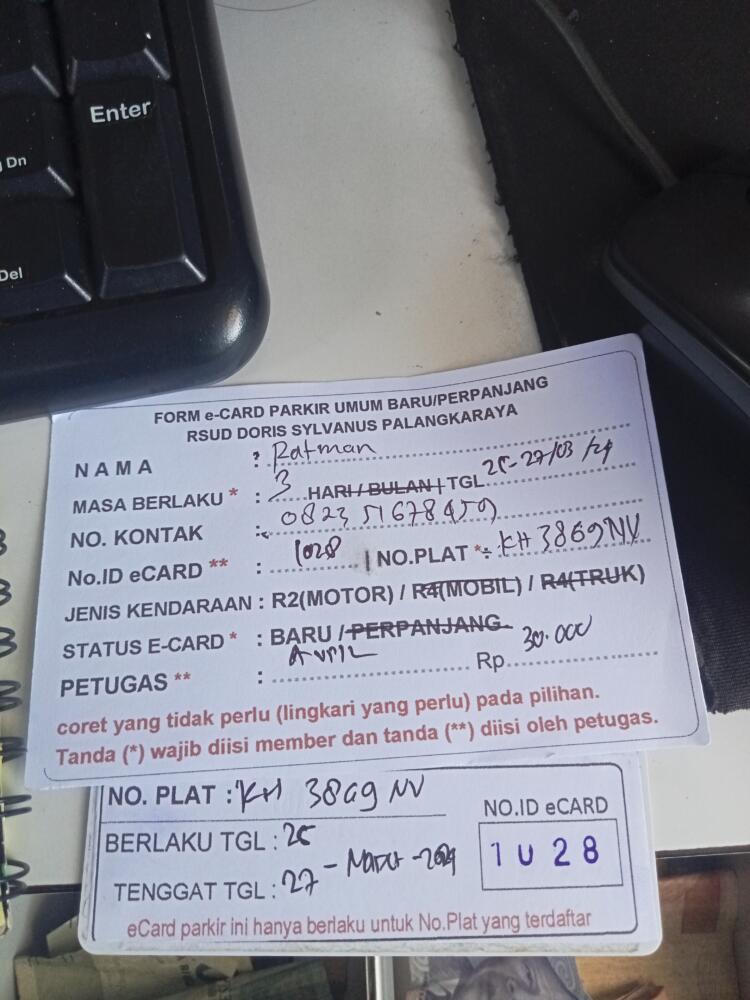 Enter
Dn
Del
FORM e-CARD PARKIR UMUM BARU/PERPANJANG
RSUD DORIS SYLVANUS PALANGKARAYA
NAMA : Ratman
MASA BERLAKU * : 3 HARI / BULAN | TGL 25-27/03/24
NO. KONTAK : 0823 51678459
No.ID eCARD ** : 1028 | NO.PLAT * : KH 3869 NV
JENIS KENDARAAN : R2(MOTOR) / R4(MOBIL) / R4(TRUK)
STATUS E-CARD * : BARU / PERPANJANG
PETUGAS ** : Rp 30.000
coret yang tidak perlu (lingkari yang perlu) pada pilihan.
Tanda (*) wajib diisi member dan tanda (**) diisi oleh petugas.
NO. PLAT : KH 3869 NV
NO.ID eCARD
BERLAKU TGL : 25
1028
TENGGAT TGL : 27 - Maret - 2024
eCard parkir ini hanya berlaku untuk No.Plat yang terdaftar